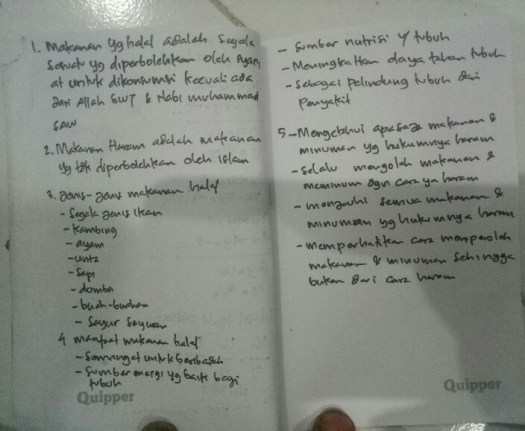 1. Makanan yg halal adalah segala
sesuatu yg diperbolehkan oleh
at untuk dikonsumsi kecuali ada
dari Allah SWT & Nabi muhammad
SAW
2. Makanan Haram adalah makanan
yg tdk diperbolehkan oleh islam
3. Jenis-jenis makanan halal
- Segala jenis ikan
- kambing
- ayam
- unta
- sapi
- domba
- buah-buahan
- Sayur sayuran
4 manfaat makanan halal
- Semangat untuk beribadah
- Sumber energi yg baik bagi
tubuh
Quipper
- Sumber nutrisi y tubuh
- Meningkatkan daya tahan tubuh
- Sebagai pelindung tubuh dari
Penyakit
5. - Mengetahui apa saja makanan &
minuman yg hukumnya haram
- selalu mengolah makanan &
meminum dgn cara ya haram
- menjauhi semua makanan &
minuman yg hukumnya haram
- memperhatikan cara memperoleh
makanan & minuman sehingga
bukan dari cara haram
Quipper